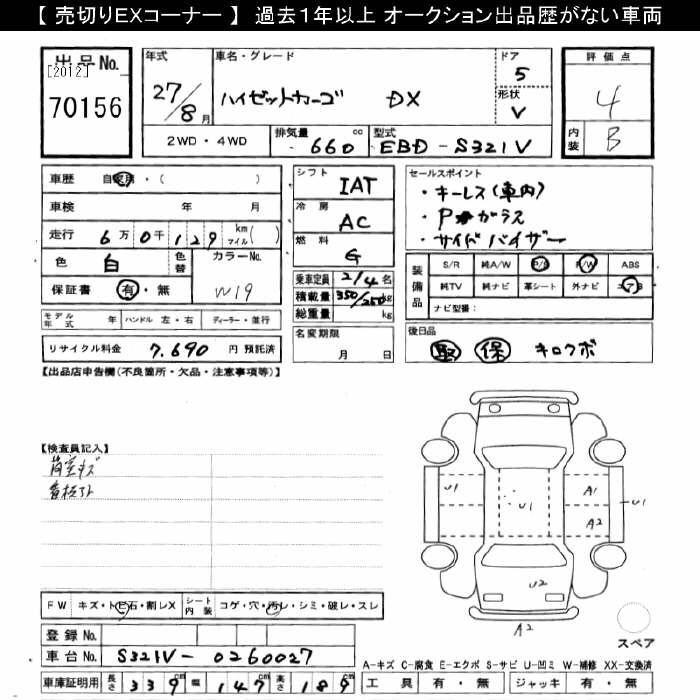 【 売切りEXコーナー 】 過去1年以上 オークション出品歴がない車両
出品No.
[2012]
70156
年式
27/8月
車名・グレード
ハイゼットカーゴ DX
ドア
5
形状
V
評価点
4
内装
B
2WD・4WD
排気量 660 cc
型式 EBD-S321V
車歴
・( )
車検 年 月
走行 6万0千129 km マイル( )
色 白
色替
カラーNo.
W19
保証書 有・無
モデル年式 年
ハンドル 左・右
ディーラー・並行
リサイクル料金 7.690 円 預託済
シフト
IAT
冷房
AC
燃料
G
乗車定員 2/4名
積載量 350/250kg
総重量 kg
名変期限
月 日
セールスポイント
・キーレス(車内)
・Pガラス
・サイドバイザー
装備品
S/R 純A/W P/S P/W ABS
純TV 純ナビ 革シート 外ナビ
ナビ型番:
後日品
取 保 キロクボ
【出品店申告欄(不良箇所・欠品・注意事項等)】
【検査員記入】
荷室キズ
看板アト
U1
U1
A1
A2
U1
U2
A2
スペア
FW キズ・トビ石・割レX
シート内装 コゲ・穴・汚レ・シミ・破レ・スレ
登録 No.
車台 No. S321V-0260027
車庫証明用 長さ 339cm 幅 147cm 高さ 189cm
A-キズ C-腐食 E-エクボ S-サビ U-凹ミ W-補修 XX-交換済
工具 有・無 ジャッキ 有・無